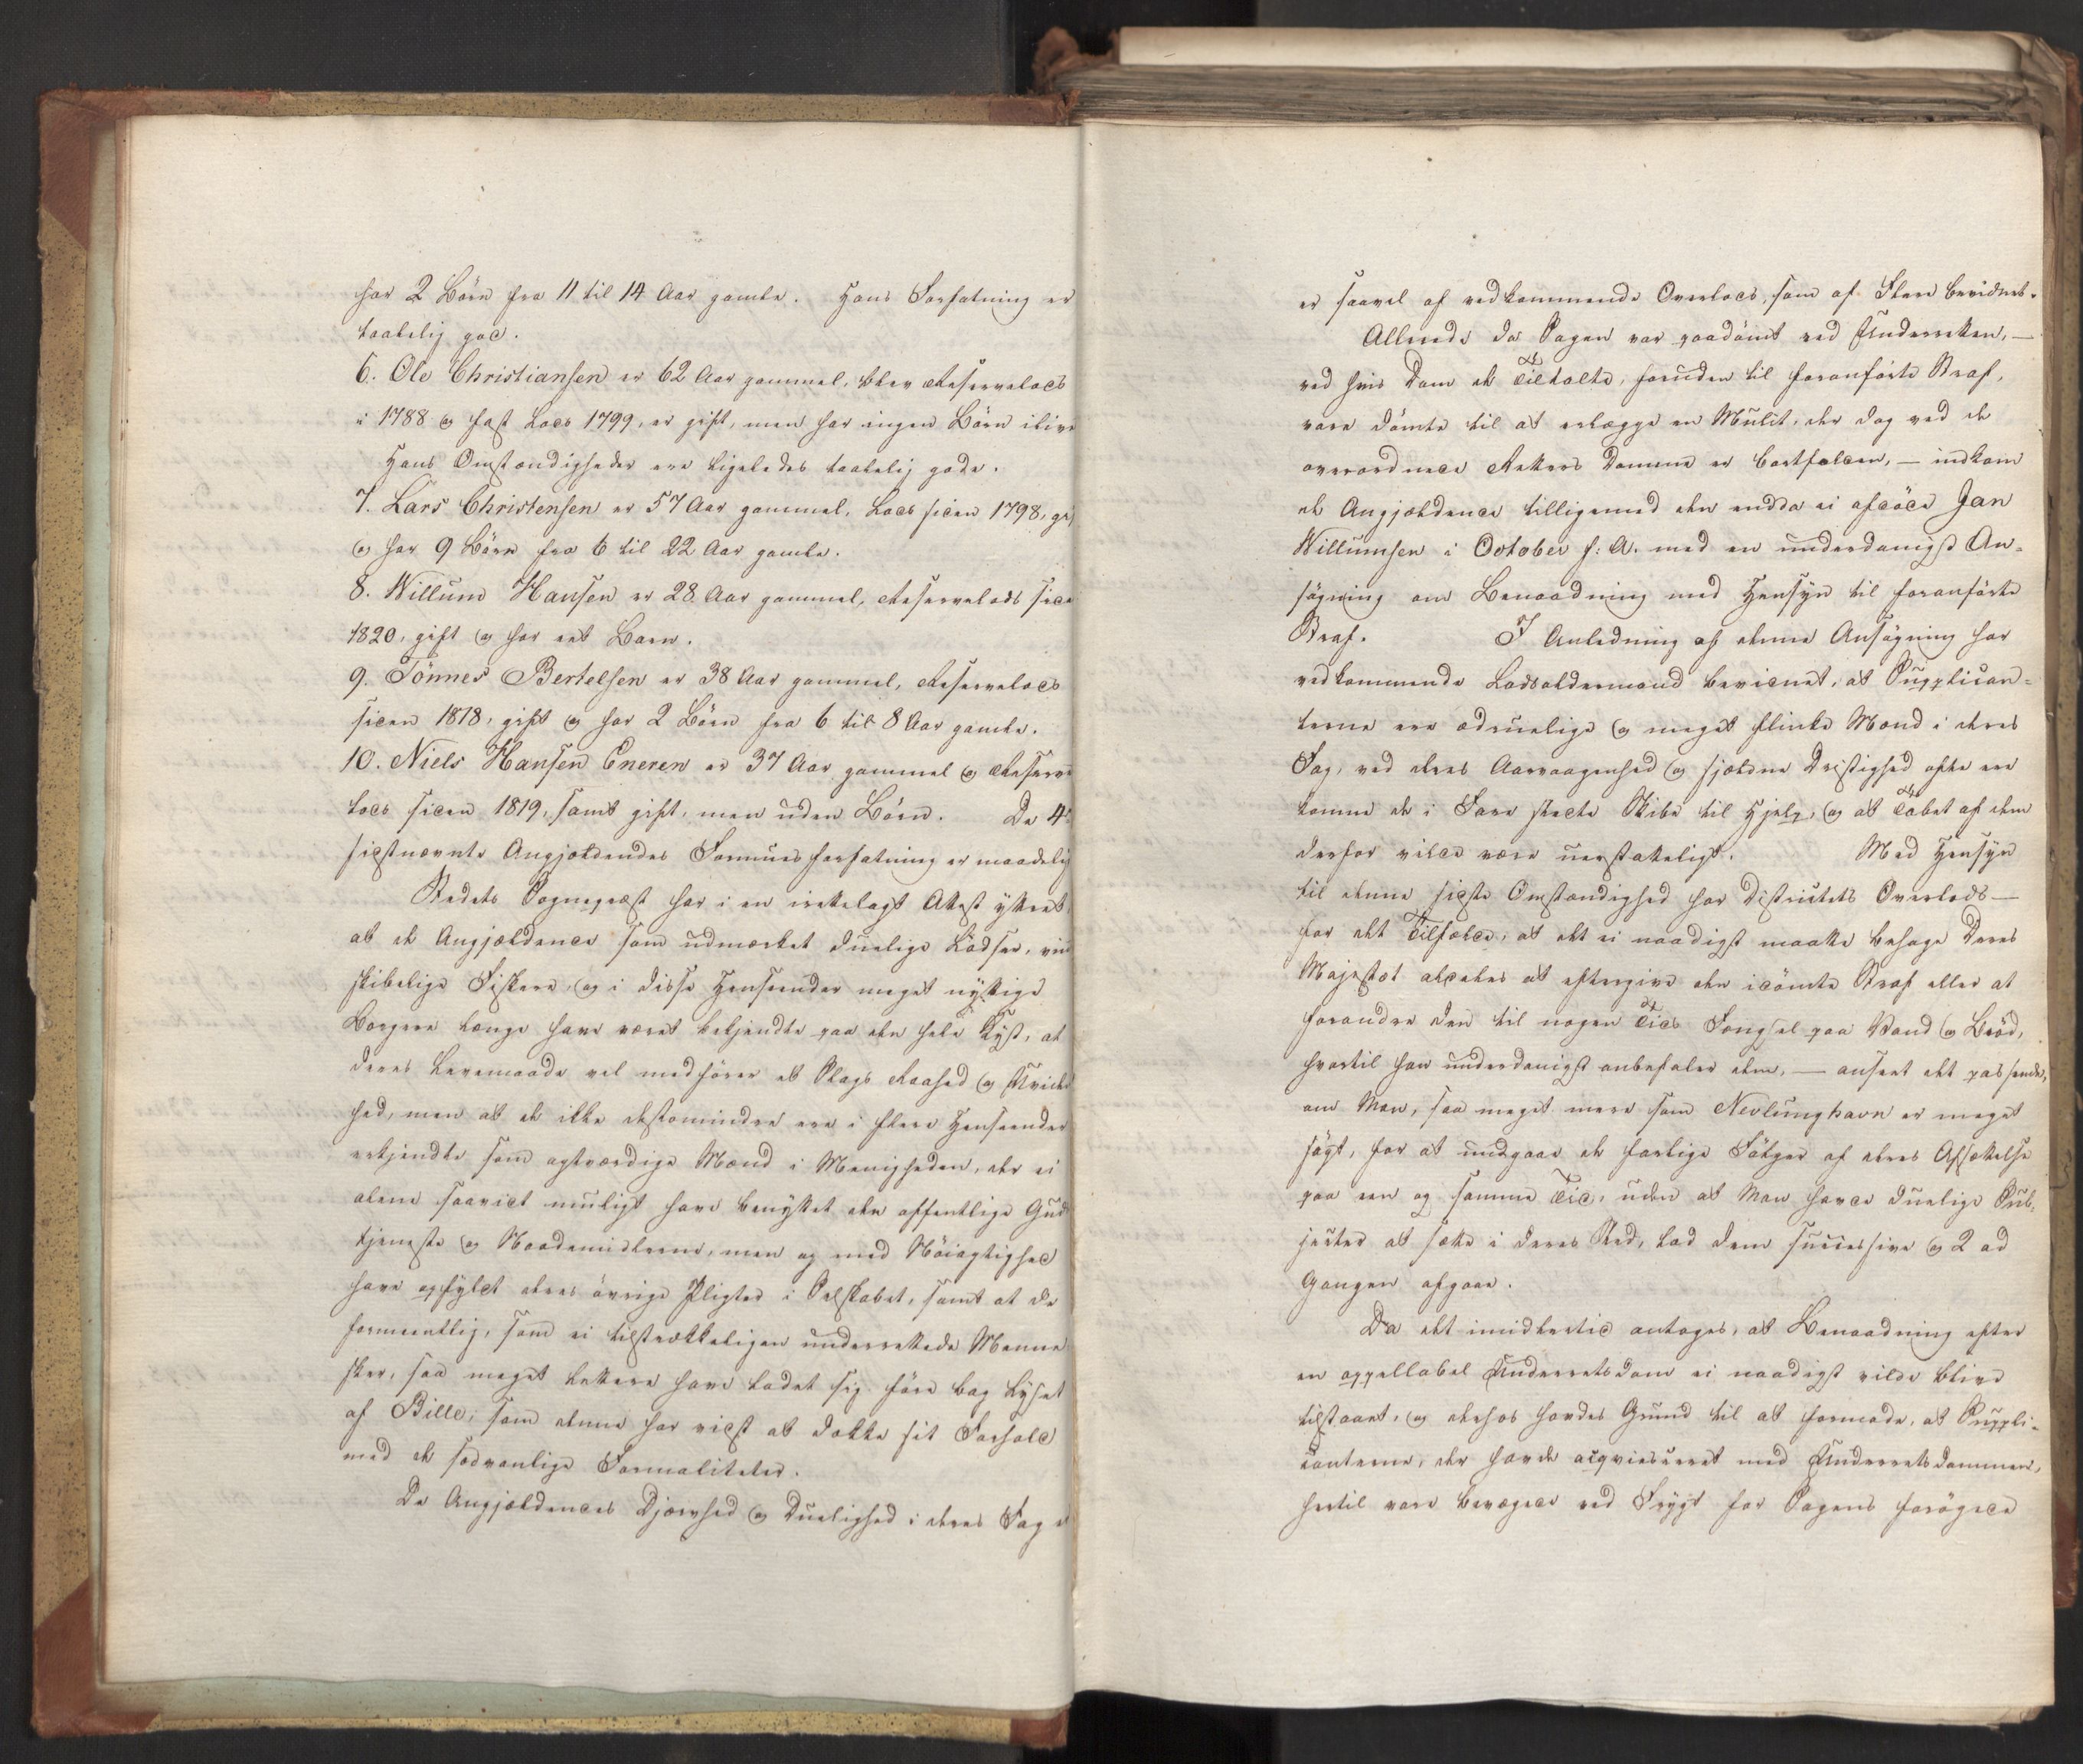 har 2 Börn fra 11 til 14 Aar gamle. Hans Forfatning er
taalelig god.
6. Ole Christiansen er 62 Aar gammel, blev Reservelods
i 1788 og fast Lods 1799, er gift, men har ingen Börn ilive
Hans Omstændigheder ere ligeledes taalelig gode.
7. Lars Christensen er 57 Aar gammel, Lods siden 1798, gi
og har 9 Börn fra 6 til 22 Aar gamle.
8. Willum Hansen er 28 Aar gammel, Reservelods side
1820, gift og har eet Barn.
9. Tönnes Bertelsen er 38 Aar gammel, Reservelods
siden 1818, gift og har 2 Börn fra 6 til 8 Aar gamle.
10. Niels Hansen Eneren er 37 Aar gammel og Reserve
lods siden 1819, samt gift, men uden Börn. De 4
sidstnævnte Angjældendes Formuesforfatning er maadelig
Stedets Sognepræst har i en irettelagt Attest yttret
at de Angjældende som udmærket duelige Lodser, vin
skibelige Fiskere, og i disse Henseender meget nyttige
Borgere længe have været bekjendte paa den hele Kyst, at
deres Levemaade vel medförer et Slags Raahed og Uvide
hed, men at de ikke destomindre ere i flere Henseender
erkjendte som agtværdige Mænd i Menigheden, der ei
alene saavidt muligt have benyttet den offentlige Guds
tjeneste og Naademidlerne, men og med Nöiagtighed
have opfyldt deres övrige Pligter i Selskabet, samt at de
formeentlig, som ei tilstrækkeligen underrettede Menne
sker, saa meget lettere have ladet sig före bag Lyset
af Bille, som denne har vidst at dække sit Forhold
med de sædvanlige Formaliteter.
De Angjældendes Djærvhed og Duelighed i deres Fag
er saavel af vedkommende Overlods, som af Flere bevidnet.
Allerede da Sagen var paadömt ved Underretten, —
ved hvis Dom de Tiltalte, foruden til foranförte Straf,
vare dömte til at erlægge en Mulct, der dog ved de
overordnede Retters Domme er bortfalden, — indkom
de Angjældende tilligemed den endda ei afdöde Jan
Willumsen i October f: A. med en underdanigst An-
sögning om Benaadning med Hensyn til foranförte
Straf. I Anledning af denne Ansögning har
vedkommende Lodsoldermand bevidnet, at Supplican-
terne ere ædruelige og meget flinke Mænd i deres
Fag, ved deres Aarvaagenhed og sjeldne Dristighed ofte ere
komne de i Fare stedte Skibe til Hjelp, og at Tabet af dem
derfor vilde være uerstatteligt. Med Hensyn
til denne sidste Omstændighed har Districtets Overlods —
for det Tilfælde, at det ei naadigst maatte behage Deres
Majestæt aldeles at eftergive den idömte Straf eller at
forandre den til nogen Tids Fængsel paa Vand og Bröd,
hvortil han underdanigst anbefaler dem, — anseet det passende,
om Man, saa meget mere som Nevlunghavn er meget
sögt, for at undgaae de farlige Fölger af deres Afsættelse
paa een og samme Tid, uden at Man havde duelige Sub-
jecter at sætte i deres Sted, lod dem successive og 2 ad
Gangen afgaae.
Da det imidlertid antoges, at Benaadning efter
en appellabel Underretsdom ei naadigst vilde blive
tilstaaet, og derhos havdes Grund til at formode, at Suppli-
canterne, der havde acqviesceret med Underretsdommen,
hertil vare bevægede ved Frygt for Sagens forögede